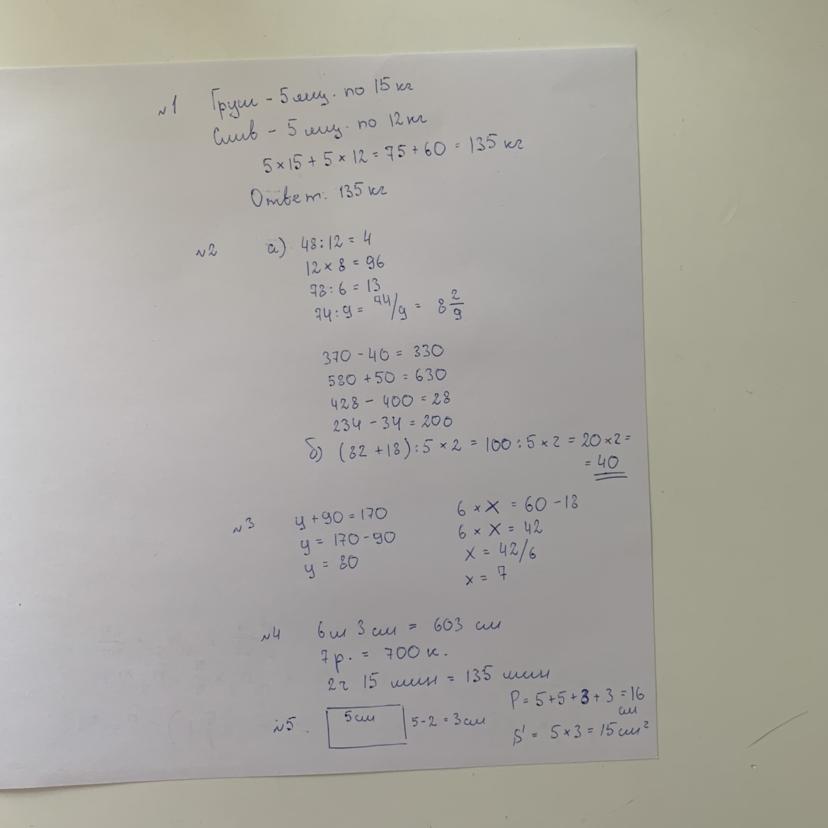 №1 Груш - 5 ящ. по 15 кг
Слив - 5 ящ. по 12 кг
5 × 15 + 5 × 12 = 75 + 60 = 135 кг
Ответ: 135 кг
№2 а) 48 : 12 = 4
12 × 8 = 96
78 : 6 = 13
74 : 9 = 74/9 = 8 2/9
370 - 40 = 330
580 + 50 = 630
428 - 400 = 28
234 - 34 = 200
б) (82 + 18) : 5 × 2 = 100 : 5 × 2 = 20 × 2 =
= 40
№3 y + 90 = 170
y = 170 - 90
y = 80
6 × x = 60 - 18
6 × x = 42
x = 42/6
x = 7
№4 6 м 3 см = 603 см
7 р. = 700 к.
2 ч 15 мин = 135 мин
№5. 5 см 5 - 2 = 3 см
P = 5 + 5 + 3 + 3 = 16
см
S = 5 × 3 = 15 см²